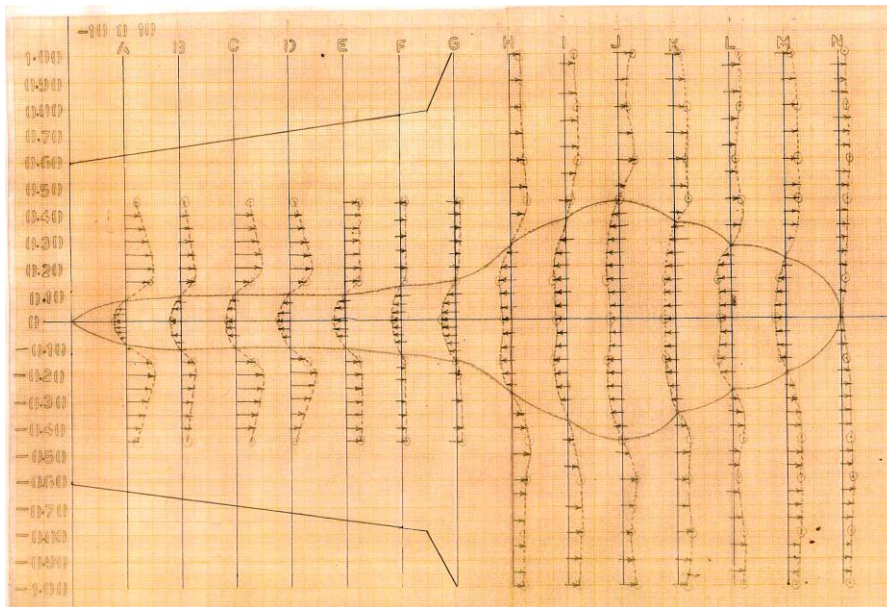 -10 0 10
A B C D E F G H I J K L M N
1.00
0.90
0.80
0.70
0.60
0.50
0.40
0.30
0.20
0.10
0
-0.10
-0.20
-0.30
-0.40
-0.50
-0.60
-0.70
-0.80
-0.90
-1.00